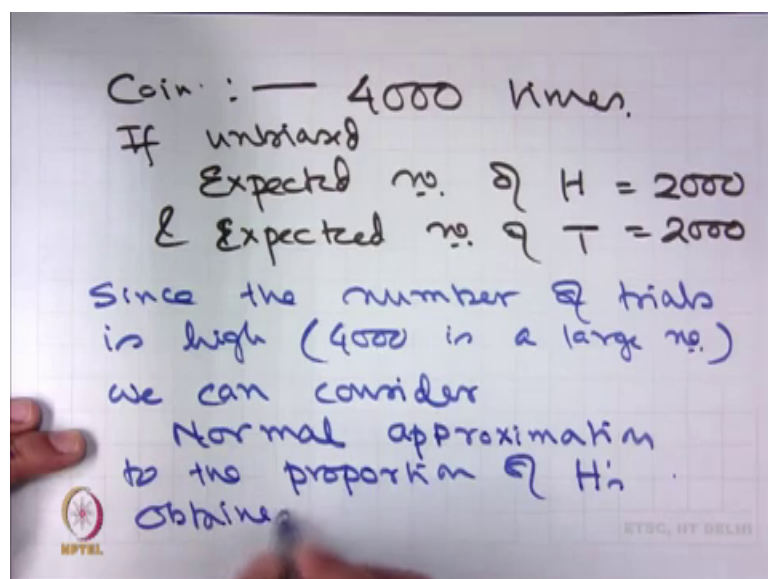 Coin : — 4000 times.
If unbiased
Expected no. of H = 2000
& Expected no. of T = 2000
Since the number of trials
is high (4000 is a large no.)
we can consider
Normal approximation
to the proportion of H's
obtaine
NPTEL
ETSC, IIT DELHI